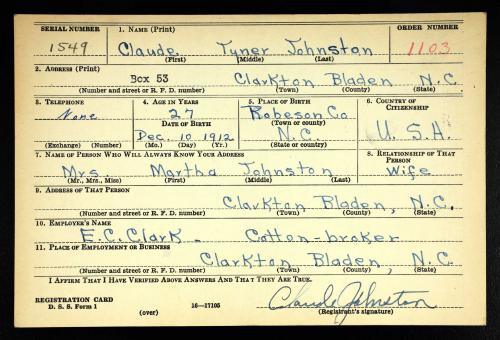 SERIAL NUMBER 1. NAME (Print) ORDER NUMBER
1549 Claude Tyner Johnston 1103
(First) (Middle) (Last)
2. ADDRESS (Print)
Box 53 Clarkton Bladen N.C.
(Number and street or R. F. D. number) (Town) (County) (State)
3. TELEPHONE 4. AGE IN YEARS 5. PLACE OF BIRTH 6. COUNTRY OF CITIZENSHIP
None 27 Robeson Co U.S.A.
DATE OF BIRTH (Town or county)
Dec. 10 1912 N.C.
(Exchange) (Number) (Mo.) (Day) (Yr.) (State or country)
7. NAME OF PERSON WHO WILL ALWAYS KNOW YOUR ADDRESS 8. RELATIONSHIP OF THAT PERSON
Mrs. Martha Johnston Wife
(Mr., Mrs., Miss) (First) (Middle) (Last)
9. ADDRESS OF THAT PERSON
Clarkton Bladen, N.C.
(Number and street or R. F. D. number) (Town) (County) (State)
10. EMPLOYER'S NAME
E.C. Clark - Cotton-broker
11. PLACE OF EMPLOYMENT OR BUSINESS
Clarkton Bladen, N.C.
(Number and street or R. F. D. number) (Town) (County) (State)
I AFFIRM THAT I HAVE VERIFIED ABOVE ANSWERS AND THAT THEY ARE TRUE.
REGISTRATION CARD
D. S. S. Form 1 (over) 16—17105 Claude Johnston
(Registrant's signature)